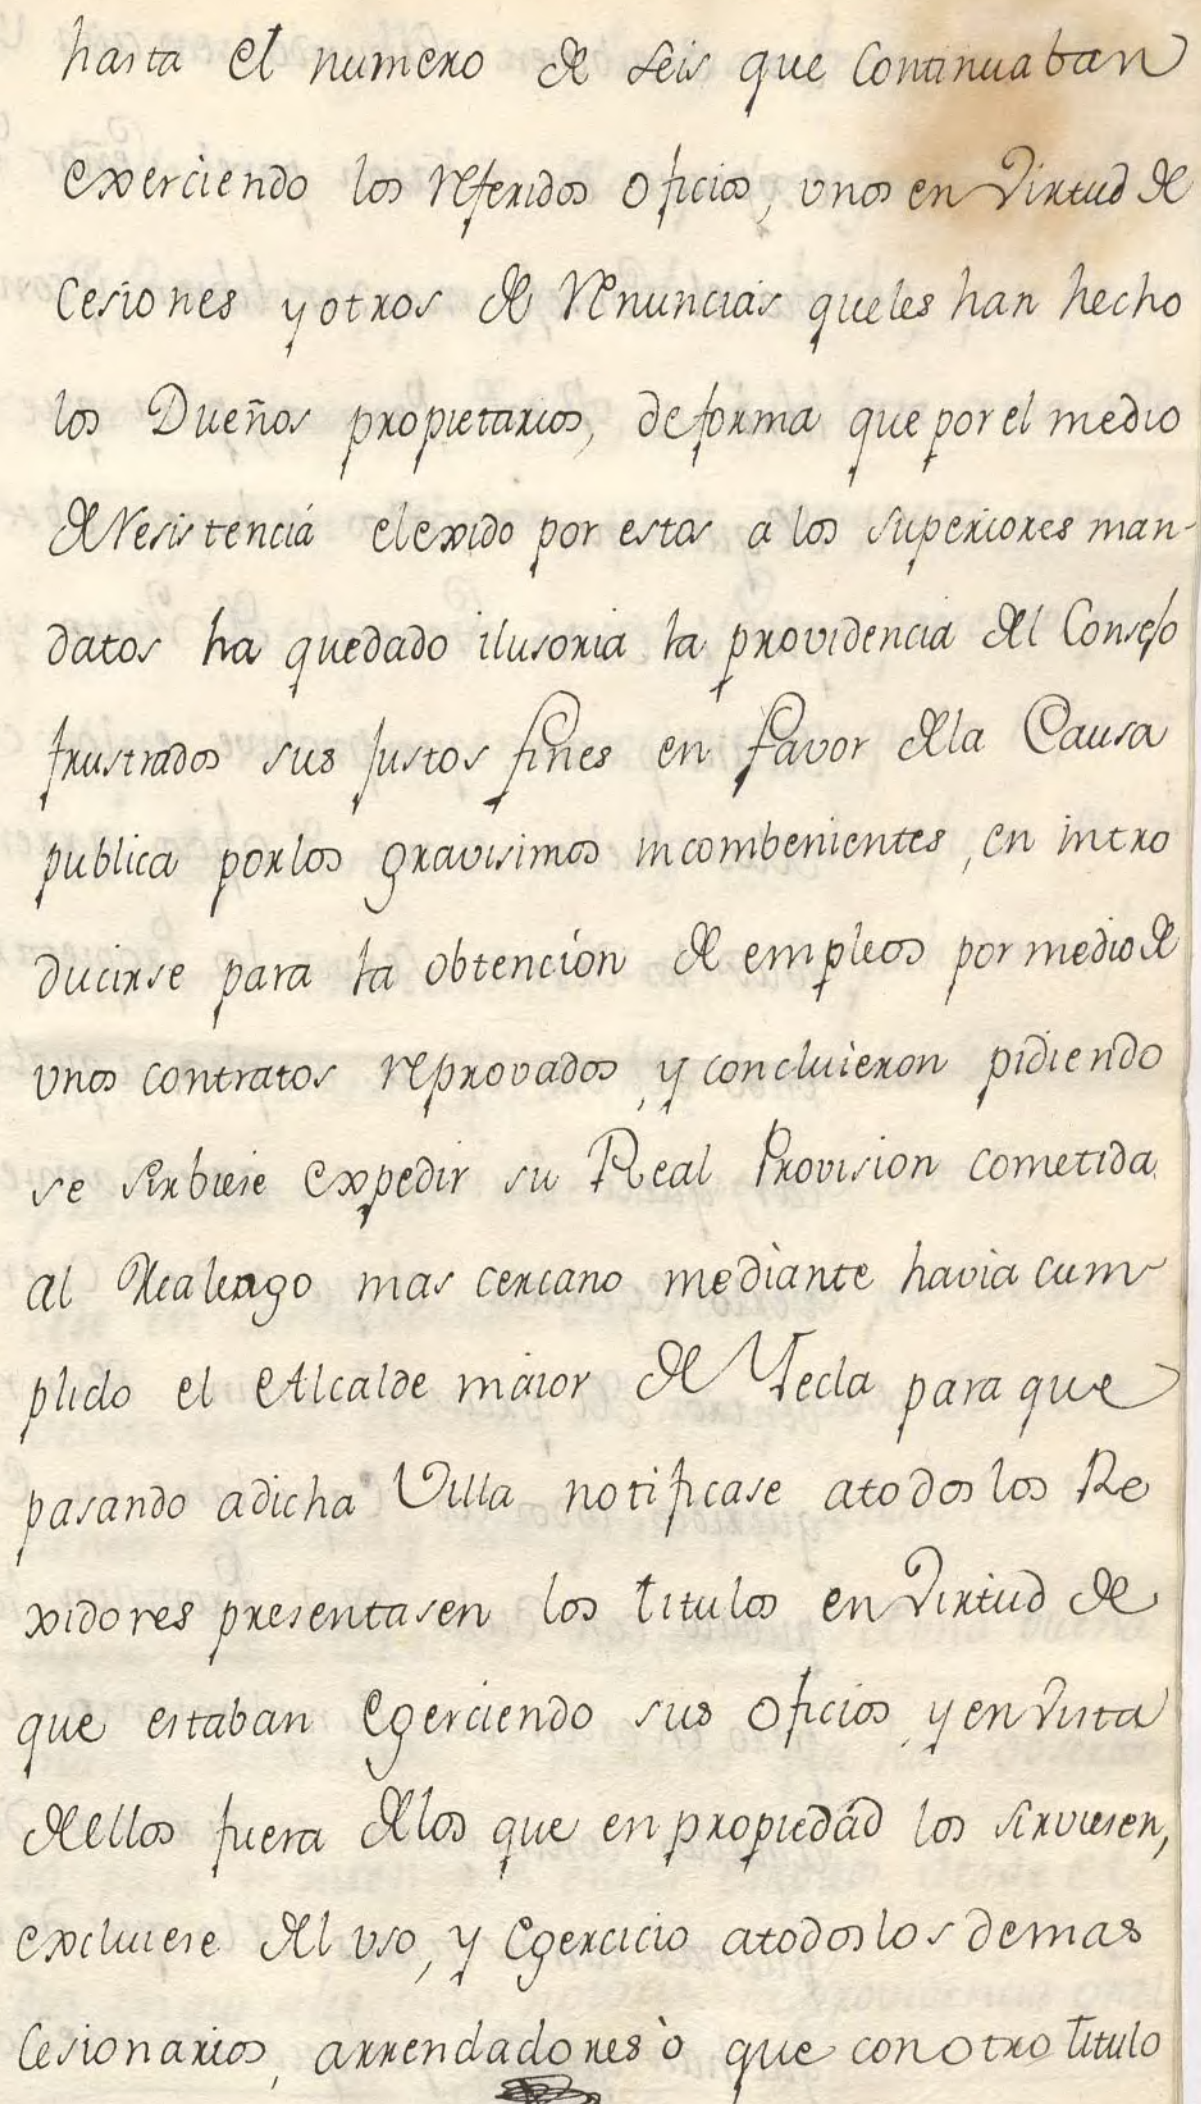 hasta el numero de seis que continuaban
exerciendo los referidos oficios, unos en Virtud de
Cesiones y otros de renuncias que les han hecho
los Dueños propietarios, de forma que por el medio
de resistenciá elexido por estos a los superiores man-
datos ha quedado ilusoria la providencia del Consejo
frustrados sus justos fines en favor de la Causa
publica por los gravisimos incombenientes, en intro
ducirse para la obtención de empleos por medio de
vnos contratos reprovados, y concluieron pidiendo
se sirbiese expedir su Real Provision cometida
al Realengo mas cercano mediante havia cum
plido el Alcalde maior de Yecla para que
pasando a dicha Villa notificase a todos los Re
xidores presentasen los titulos en Virtud de
que estaban Egerciendo sus oficios, y en Vista
de ellos fuera de los que en propiedád los sirviesen,
excluiese del vso, y Egercicio a todos los demas
Cesionarios, arrendadores ò que con otro titulo